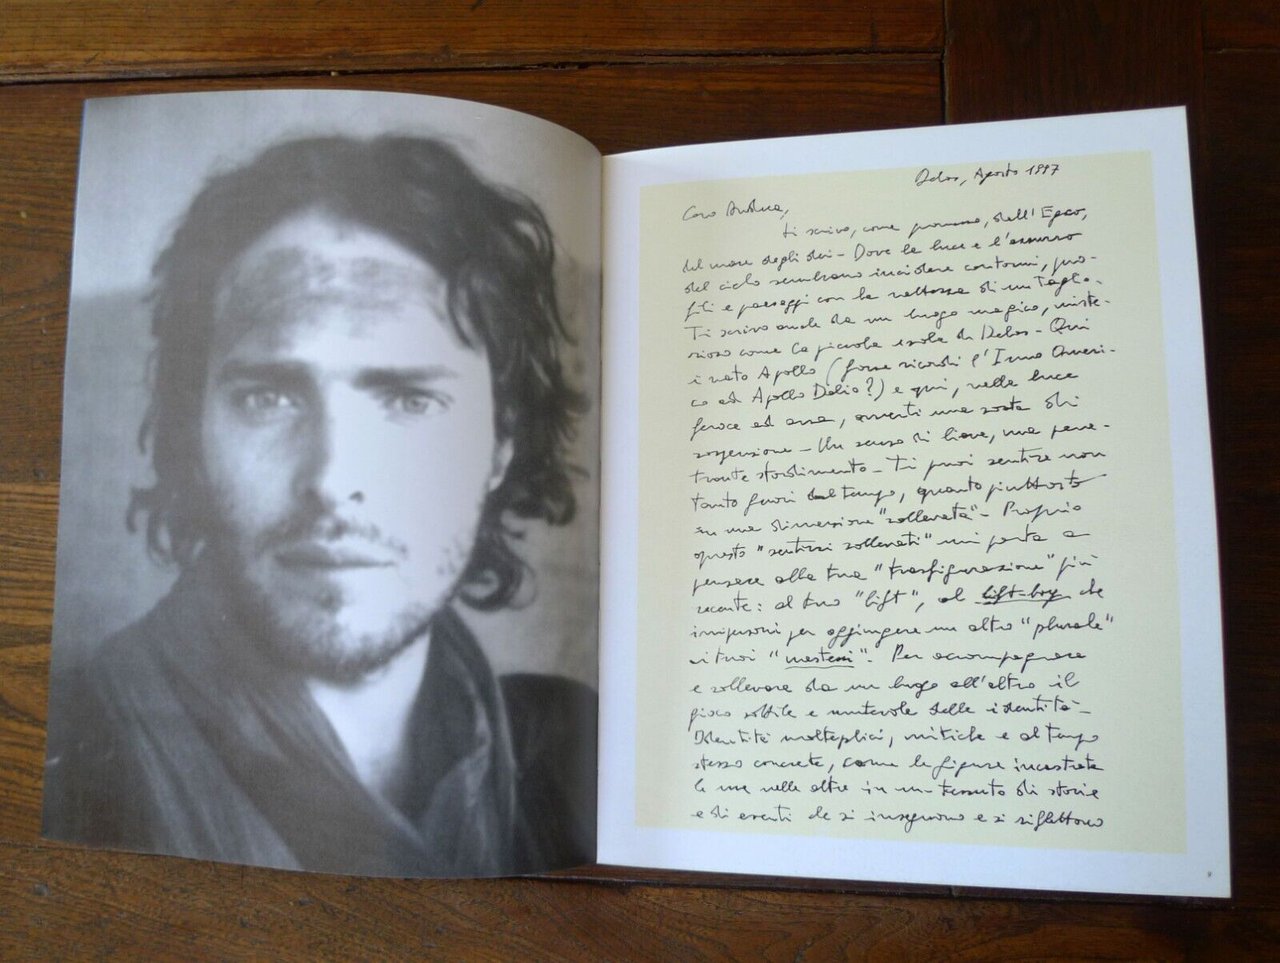 Delos, Agosto 1997
Caro Andrea,
ti scrivo, come promesso, dall'Egeo,
dal mare degli dei – Dove la luce e l'azzurro
del cielo sembrano incidere contorni, pro-
fili e paesaggi con la nettezza di un taglio.
Ti scrivo anche da un luogo magico, miste-
rioso come la piccola isola di Delos – Qui
è nato Apollo (forse ricordi l'Inno Omeri-
co ad Apollo Delio?) e qui, nella luce
feroce ed arsa, avverti una sorta di
sospensione – Un senso di lieve, ma pene-
trante stordimento – Ti puoi sentire non
tanto fuori dal tempo, quanto piuttosto
su una dimensione "sollevata" – Proprio
questo "sentirsi sollevati" mi porta a
pensare alla tua "trasfigurazione" più
recente: al tuo "lift", al lift-boy che
impersoni per aggiungere un altro "plurale"
ai tuoi "mestessi". Per accompagnare
e sollevare da un luogo all'altro il
gioco sottile e mutevole delle identità –
Identità molteplici, mitiche e al tempo
stesso concrete, come le figure incastrate
le une nelle altre in un tessuto di storie
e di eventi che si inseguono e si riflettono